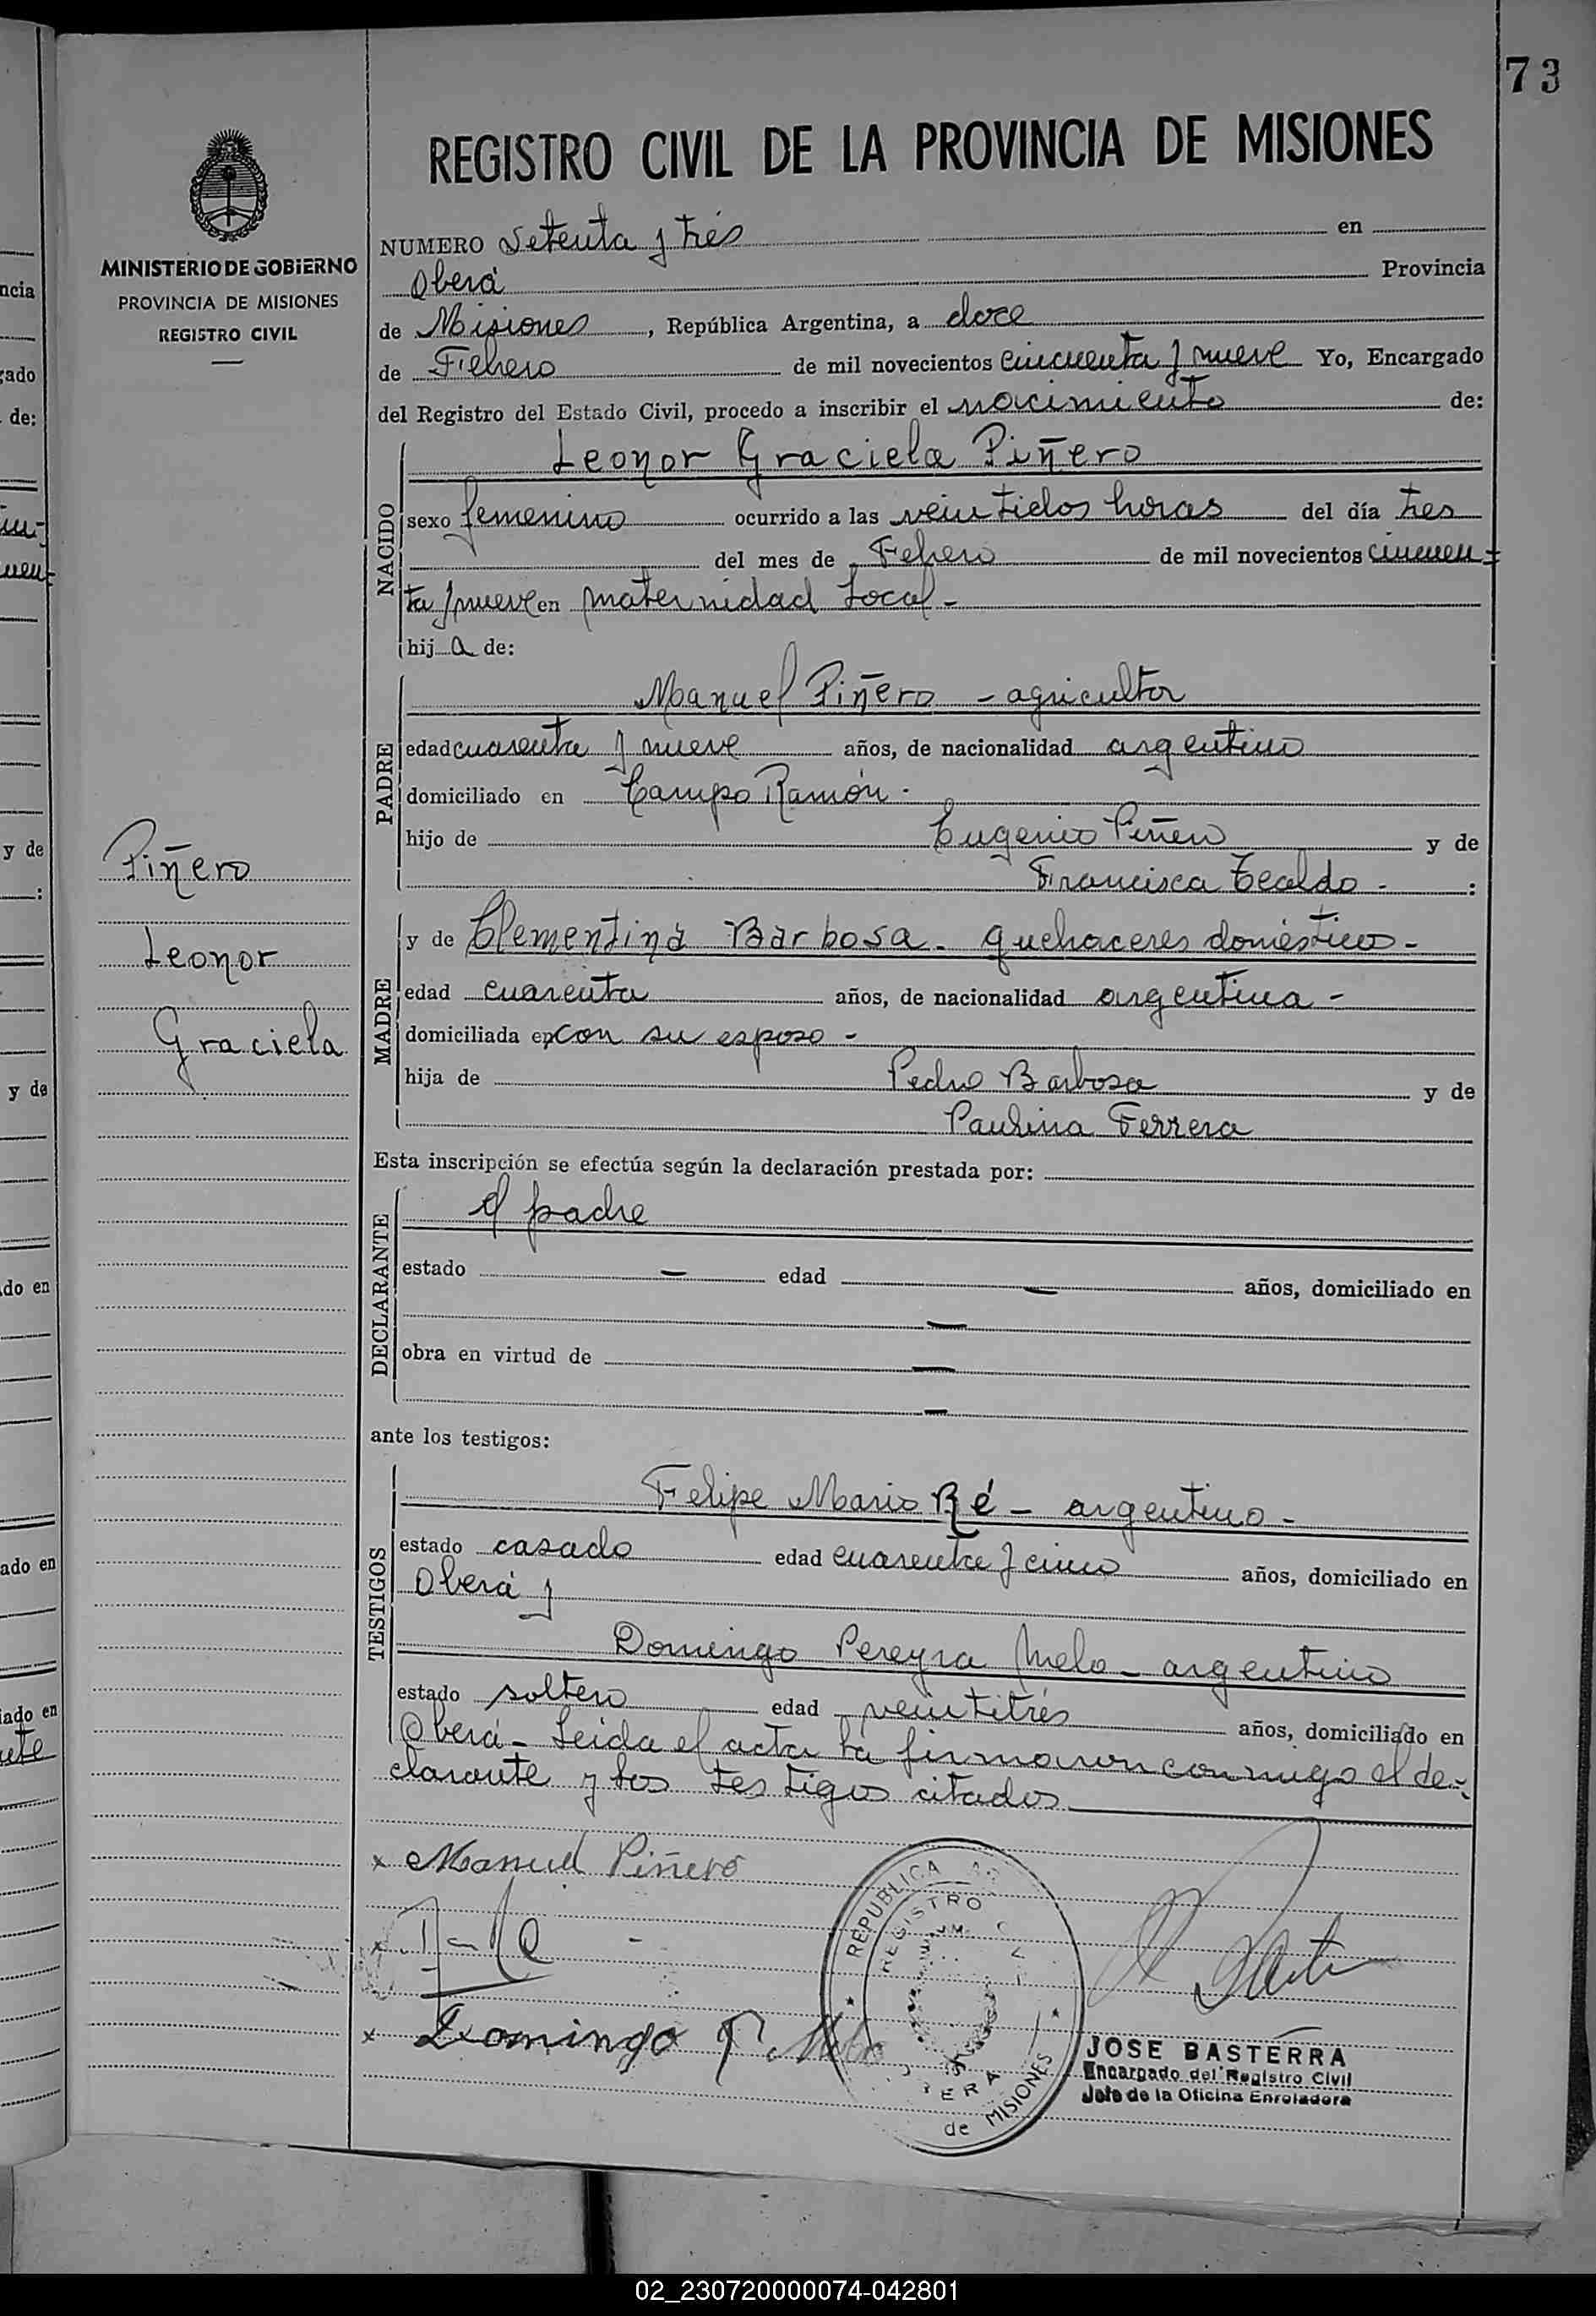 73
REGISTRO CIVIL DE LA PROVINCIA DE MISIONES
MINISTERIO DE GOBIERNO
PROVINCIA DE MISIONES
REGISTRO CIVIL
NUMERO Setenta y trés en
Oberá Provincia
de Misiones, República Argentina, a doce
de Febrero de mil novecientos cincuenta y nueve Yo, Encargado
del Registro del Estado Civil, procedo a inscribir el nacimiento de:
NACIDO
Leonor Graciela Piñero
sexo femenino ocurrido a las veintidos horas del día tres
del mes de Febrero de mil novecientos cincuen-
ta y nueve en maternidad Local-
hij a de:
PADRE
Manuel Piñero - agricultor
edad cuarenta y nueve años, de nacionalidad argentino
domiciliado en Campo Ramón.
hijo de Eugenio Piñero y de
Francisca Tealdo - :
MADRE
y de Clementina Barbosa - quehaceres domésticos-
edad cuarenta años, de nacionalidad argentina-
domiciliada en con su esposo-
hija de Pedro Barbosa y de
Paulina Ferrera
Esta inscripción se efectúa según la declaración prestada por:
DECLARANTE
el padre
estado - edad - años, domiciliado en
-
obra en virtud de -
-
ante los testigos:
TESTIGOS
Felipe Mario Ré - argentino-
estado casado edad cuarenta y cinco años, domiciliado en
Oberá y
Domingo Pereyra Melo - argentino
estado soltero edad veintitrés años, domiciliado en
Oberá - Leida el acta la firmaron conmigo el de-
clarante y los testigos citados
x Manuel Piñero
x Domingo P. Melo
REPUBLICA
REGISTRO
de MISIONES
JOSE BASTERRA
Encargado del Registro Civil
Jefe de la Oficina Enroladora
Piñero
Leonor
Graciela
ncia
gado
de:
y de
:
y de
do en
ado en
iado en
02_230720000074-042801